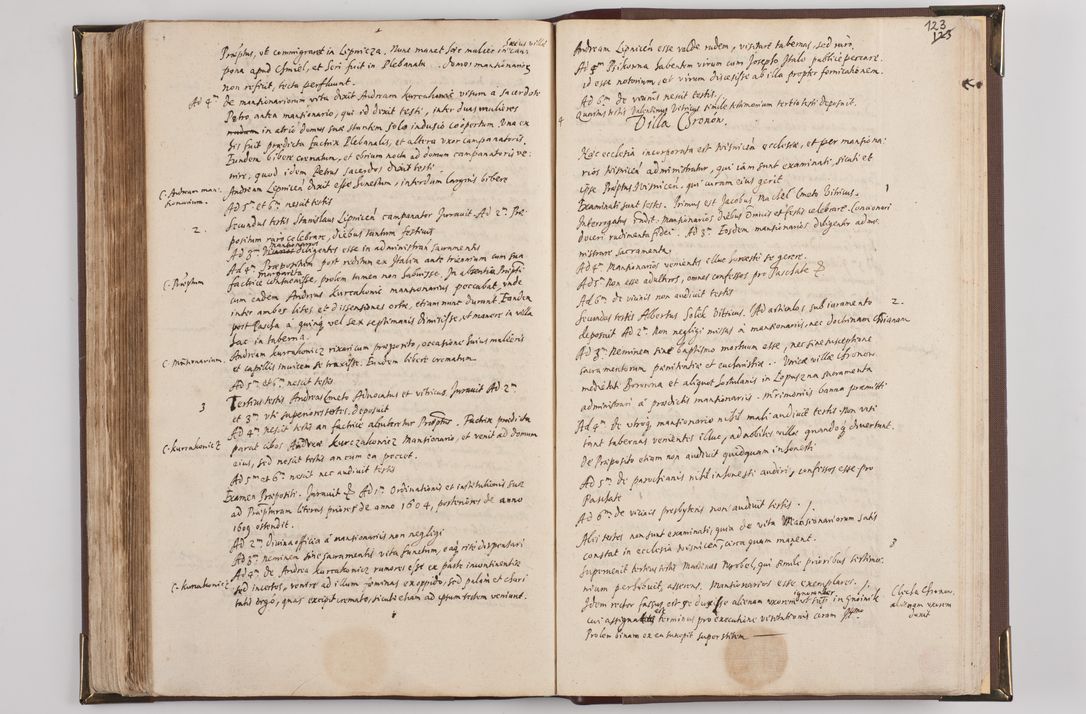 huius villae
Praeptus, ut commigraret in Lipnicza. Nunc manet haec mulier in cau
pona apud Chmiel, et heri fuit in Plebanatu. Domus mansionariae
non reficit, tecta perfluunt.
Ad 4m De mansionariorum vita dixit Andream Kurczakouic visum a sacerdote
Petro antea mansionario, qui id dixit testi, inter duas mulieres
in atrio domus suae stantem solo indusio coopertum. Una ex
his fuit praedicta factrix Plebanalis, et altera uxor campanatoris.
Eundem bibere crematum, et ebrium noctu ad domum campanatoris ve:
nire, quod idem Petrus sacerdos dixit testi.
C. Andream man:
sionarium.
Andream Lipnicen dixit esse honestum, interdum largius bibere
Ad 5m et 6m nescit testis
2.
Secundus testis Stanislaus Lipnicen campanator Iurauit. Ad 2m Prae
positum raro celebrare, diebus tantum festiuis
Ad 3m Mansionarios diligentes esse in administran sacramentis
C. Praeptum
Ad 4m Praepositum post reditum ex Italia ante triennium cum sua
factrice Margareta, prolem tamen non habuisse. In absentia Praepti
cum eadem Andreas Kurczakouic mansionarius peccabat, unde
inter ambos lites et dissensiones ortae, etiam nunc durant. Eandem
post Pascha a quinq vel sex septimanis dimisisse, et manere in villa
hac in taberna.
C. Mansionarium.
Andream Kurczakouicz rixaricum praeposito, occasione huius mulieris
et capillis inuicem se traxisse. Eundem bibere crematum.
Ad 5m et 6m nescit testis
3
Tertius testis Andreas Cmeto Aduocatus et vitricus. Iurauit Ad 2m
et 3m uti superiores testes, deposuit
Ad 4m nescit testis an factrice abutertur Praeptus. Factrix praedicta
C. Kurczakouicz
parat cibos Andreae Kurczakouicz Mansionario, et venit ad domum
eius, sed nescit testis an cum ea peccet.
Ad 5m et 6m nescit nec audiuit testis
Examen Praepositi. Iurauit Ad 1m Ordinationis et institutionis suae
ad Praeposituram literas priores de anno 1604, posteriores de anno
1609 ostendit.
Ad 2m Diuina officia a mansionariis non negligi
Ad 3m neminem sine sacramentis vita functum, eaq rite dispensari
C. Kurczakouicz
Ad 4m De Andrea Kurczakouicz rumores esse ex parte incontinentiae
sed incertos, venire ad illum foeminas ex oppido, sed palam et chari
tatis ergo, quas excipit cremato, sicuti etiam ad ipsum testem veniunt.
123
Andream Lipnicen esse valde rudem, visitare tabernas, sed raro.
Ad 5m Prikorna habentem virum cum Josepho Italo publice peccare.
id esse notorium, et virum discessisse ab illa propter fornicationem.
Ad 6m de vicinis nescit testis.
4
Quartus testis Valentinus Vitricus simile testimonium tertio testi deposuit.
Villa Chronow.
Haec ecclesia incorporata est Wisnicen ecclesiae, et per mansiona:
rios Wisnicen administratur, qui iam sunt examinati, sicuti et
ipse Praeptus Wisnicen. qui curam eius gerit
1
Examinati sunt testes. Primus est Jacobus Machel Cmeto Vitricus.
Interrogatus Mansionarios diebus Dominicis et festis celebrare. Concionari
docere rudimenta fidei. Ad 3m Eosdem mansionarios diligenter admi:
nistrare sacramenta
Ad 4m Mansionarios venientes illuc honeste se gerere.
Ad 5m Non esse adulteros, omnes confessos pro Paschate
Ad 6m de vicinis non audiuit testis
2.
Secundus testis Albertus Solek Vitricus. Ad articulos, sub iuramento
deposuit Ad 2m Non negligi missas a mansionariis, nec doctrinam Chrianam
Ad 3m Neminem sine baptismo mortuum esse, nec sine susceptione
sacramentorum poenitentiae et eucharistiae. Unicae villae Chronow
medietati Borowna et aliquot hortulanis in Lopuszna sacramenta
administrari a praedictis mansionariis. Matrimoniis banna praemitti
Ad 4m De utroq mansionario nihil mali audiuit testis Non visi
tant tabernas venientes illuc, ad nobiles villae quandoq diuertunt.
De Praeposito etiam non audiuit quidquam inhonesti
Ad 5m De parochianis nihil inhonesti audiri, confessos esse pro
Paschate
Ad 6m De vicinis presbyteris non audiuit testis.
Alii testes non sunt examinati, quia de vita Mansionariorum satis
constat in ecclesia Wisnicen, circa quam manent.
3
Superuenit tertius testis Mathias Myrbel, qui simile prioribus testimo:
nium perhibuit, asserens. Mansionarios esse exemplares.
Idem rector fassus est se duxisse alienam uxorem ignoranter
cui assignatus est terminus pro executione visitationis coram
Prolem binam ex ea suscepit superstitem
Clecha Chronow.
alienam uxorem
duxit